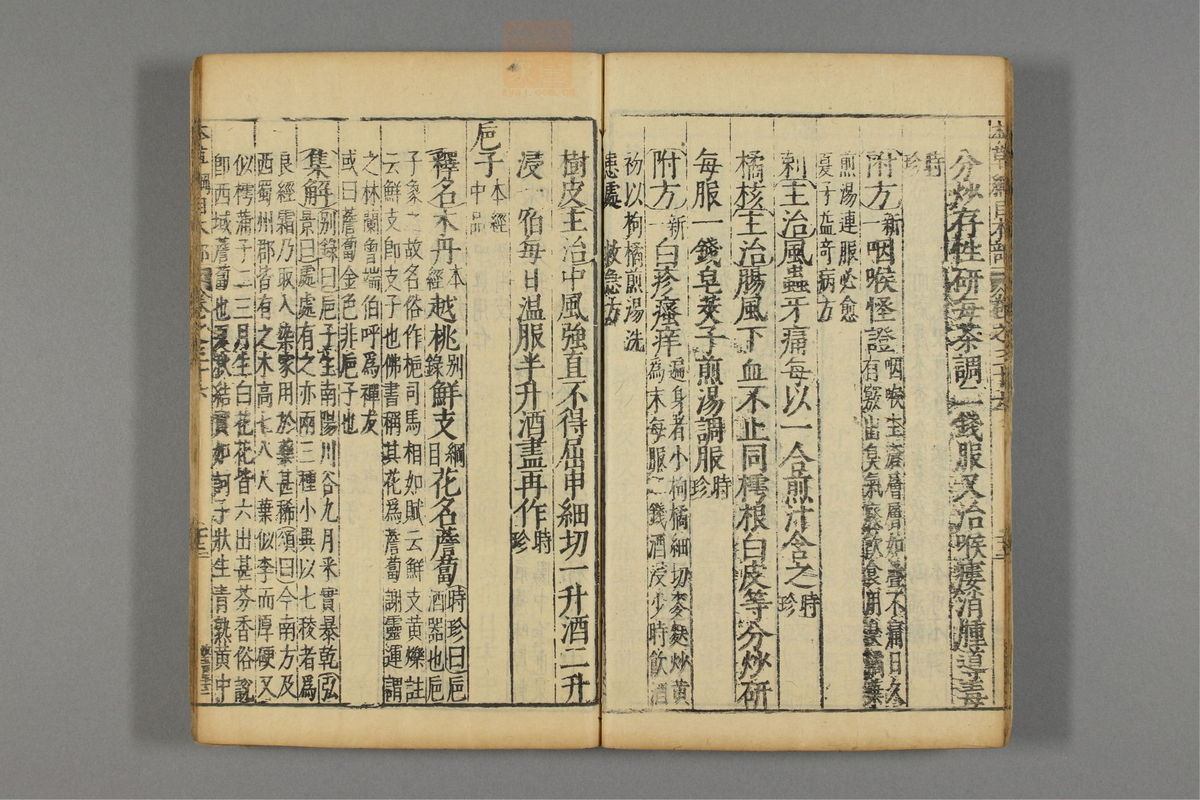 分炒存性研每茶調二錢服又治喉瘻消腫導毒
時珍
附方新一咽喉怪證咽喉生瘡層層如疊不痛日久
有竅出臭氣廢飲食用臭橘葉
煎湯連服必愈
夏子益奇病方
刺主治風蟲牙痛每以一合煎汁含之時珍
橘核主治腸風下血不止同樗根白皮等分炒研
每服一錢皂莢子煎湯調服時珍
附方新一白疹瘙痒遍身者小枸橘細切麥麩炒黃
為末每服二錢酒浸少時飲酒
初以枸橘煎湯洗
患處 救急方
樹皮主治中風強直不得屈申細切一升酒二升
浸一宿每日溫服半升酒盡再作時珍
巵子本經中品
釋名木丹本經越桃別錄鮮支綱目花名薝蔔時珍曰巵
酒器也巵
子象之故名俗作梔司馬相如賦云鮮支黃爍註
云鮮支即支子也佛書稱其花為薝蔔謝靈運謂
之林蘭曾端伯呼為禪友
或曰薝蔔金色非巵子也
集解別錄曰巵子生南陽川谷九月采實暴乾弘
景曰處處有之亦兩三種小異以七稜者為
良經霜乃取入染家用於藥甚稀頌曰今南方及
西蜀州郡皆有之木高七八尺葉似李而厚硬又
似樗蒲子二三月生白花花皆六出甚芬香俗說
即西域薝蔔也夏秋結實如訶子狀生青熟黃中